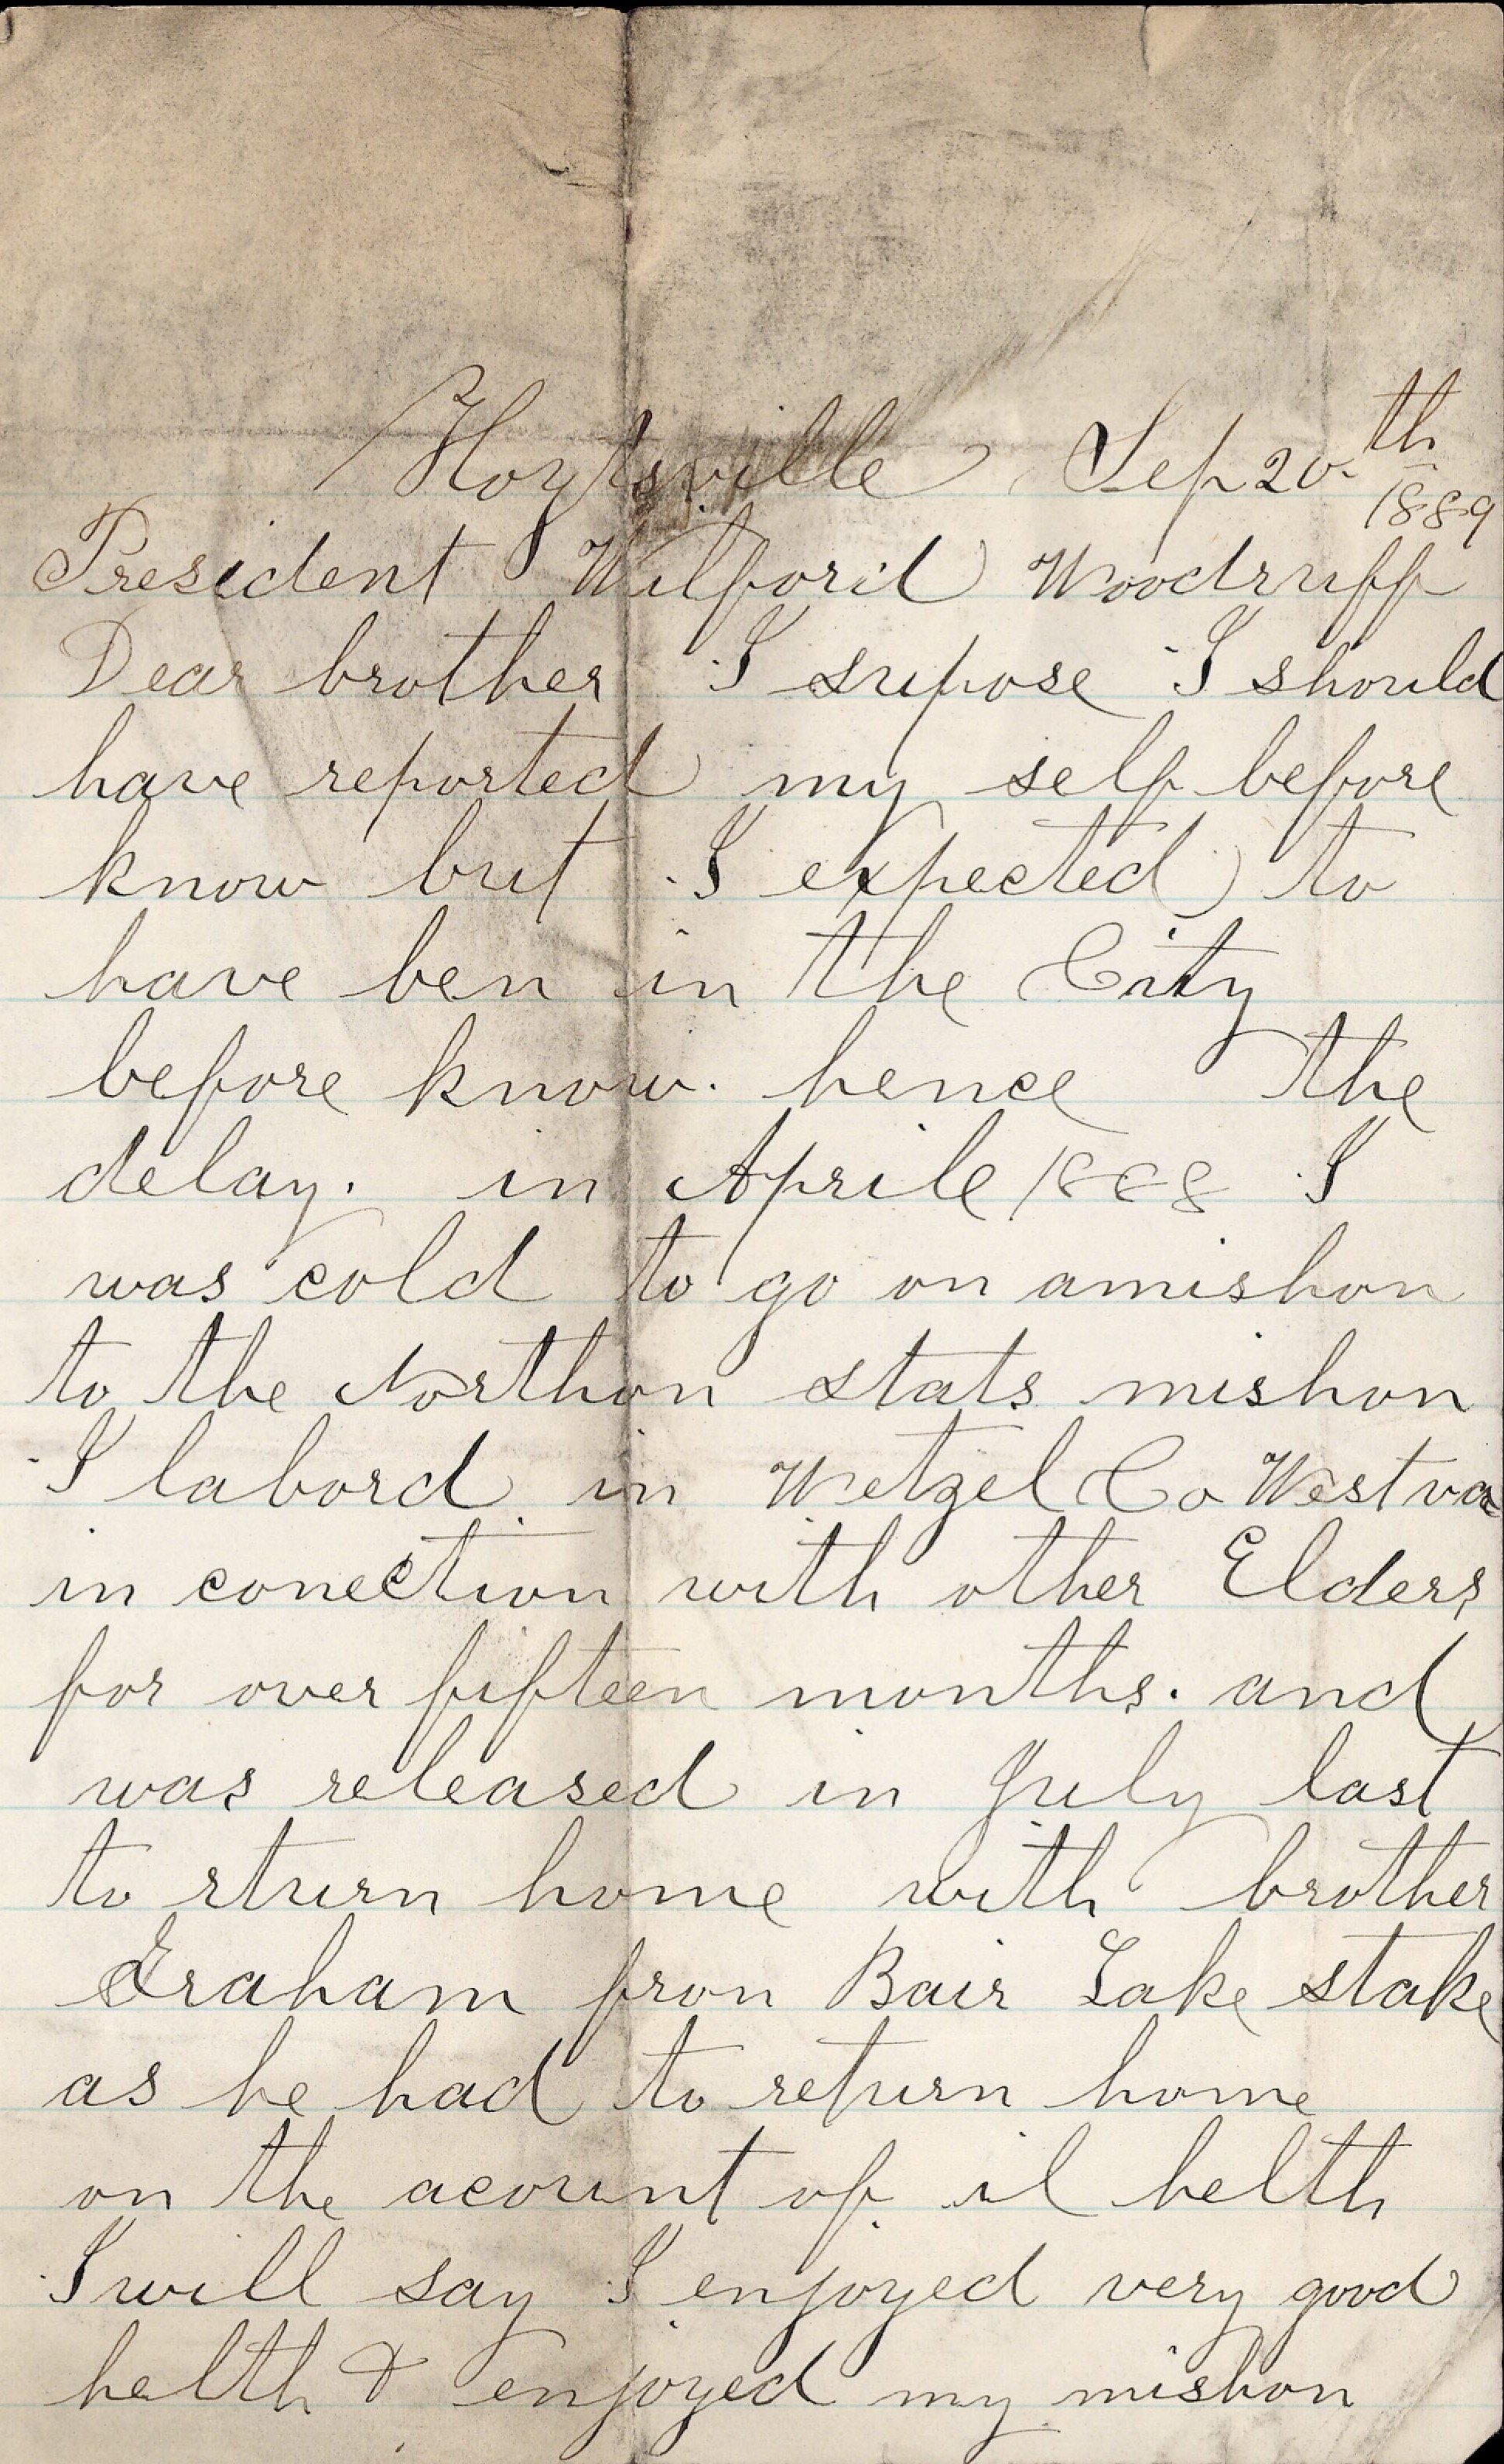 Hoytsville Sep 20th
1889
President Wilford Woodruff
Dear brother I supose I should
have reported my self before
know but I expected to
have ben in the City
before know. hence the
delay. in Aprile 1888 I
was cold to go on amishon
to the Northon stats mishon
I labord in Wetzel Co West va
in conection with other Elders
for over fifteen months. and
was released in July last
to rturn home with brother
Graham fron Bair Lake stake
as he had to return home
on the acount of il helth
I will say I enjoyed very good
helth & enjoyed my mishon